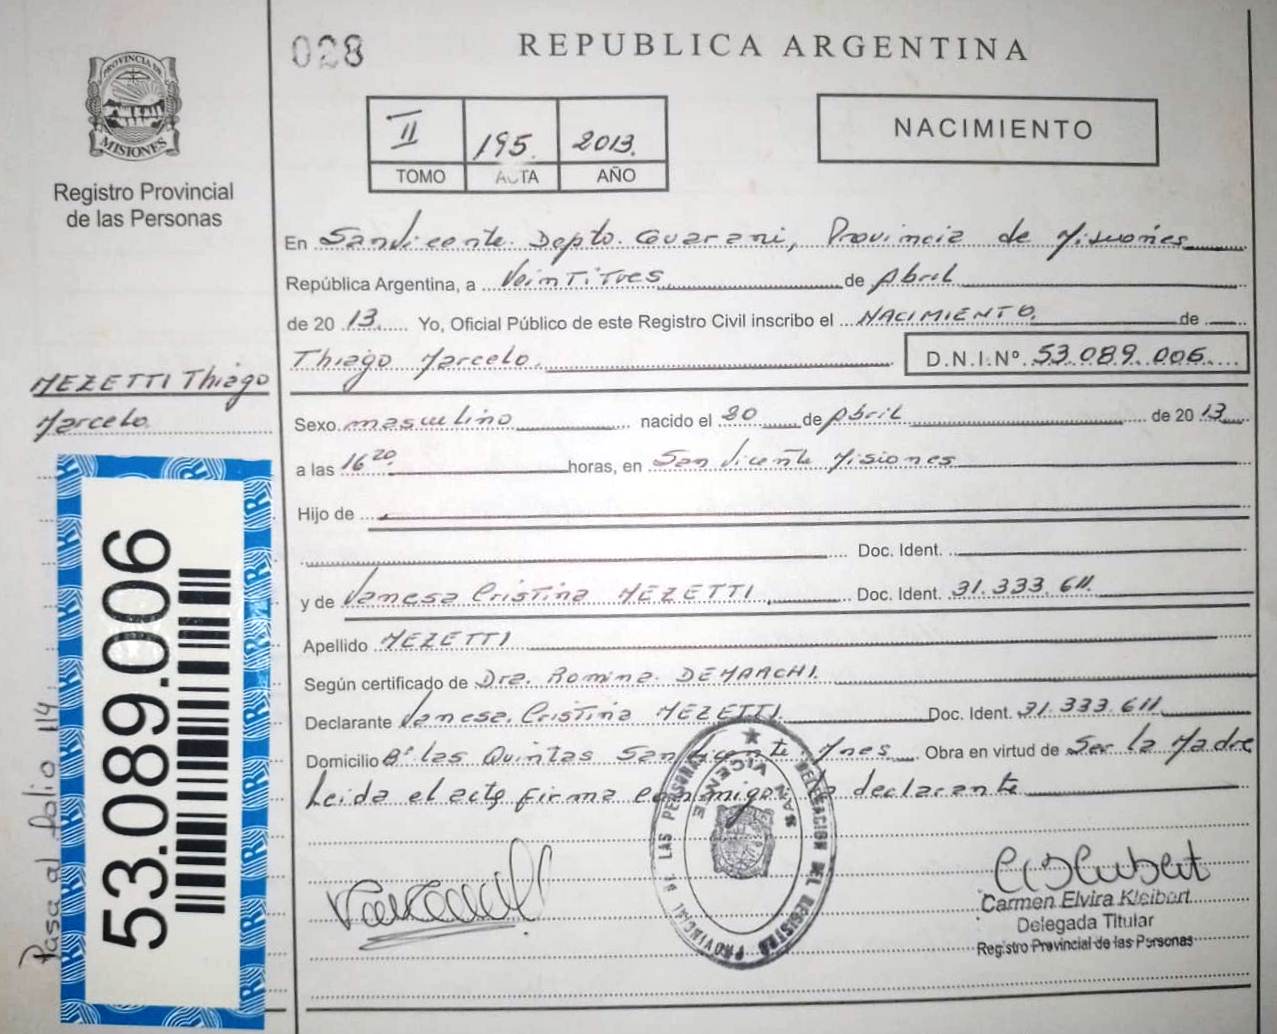 028
REPUBLICA ARGENTINA
PROVINCIA DE
MISIONES
Registro Provincial
de las Personas
II 195. 2013.
TOMO ACTA AÑO
NACIMIENTO
En San Vicente. Depto. Guarani, Provincia de Misiones
República Argentina, a Veintitres de Abril
de 2013. Yo, Oficial Público de este Registro Civil inscribo el NACIMIENTO. de
Thiago Marcelo. D.N.I.Nº 53.089.006
MEZETTI Thiago
Marcelo
Sexo masculino nacido el 20 de Abril de 2013
a las 16 20 horas, en San Vicente Misiones
Hijo de
Doc. Ident.
y de Vanesa Cristina MEZETTI Doc. Ident. 31.333.611
Apellido MEZETTI
Según certificado de Dra. Romina DEMARCHI.
Declarante Vanesa Cristina MEZETTI Doc. Ident. 31.333.611
Domicilio Bº las Quintas San Vicente Mnes. Obra en virtud de Ser la Madre
Leida el acta firma conmigo la declarante
53.089.006
Pasa al folio 114
DELEGACION DEL REGISTRO PROVINCIAL DE LAS PERSONAS
SAN VICENTE
Carmen Elvira Kleibert
Delegada Titular
Registro Provincial de las Personas